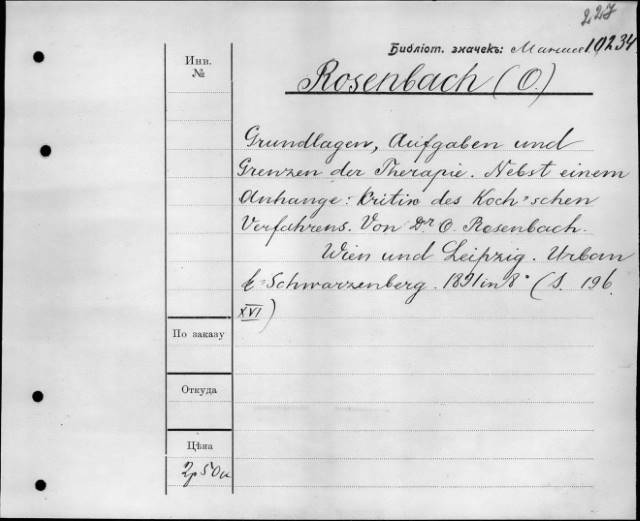 227
Библіот. значекъ: 10234
Инв.
№
Rosenbach (O.)
Grundlagen, Aufgaben und
Grenzen der Therapie. Nebst einem
Anhange: Kritik des Koch'schen
Verfahrens. Von Dr O. Rosenbach.
Wien und Leipzig. Urban
& Schwarzenberg. 1891 in 8° (S. 196.
XVI)
По заказу
Откуда
Цѣна
2р 50к